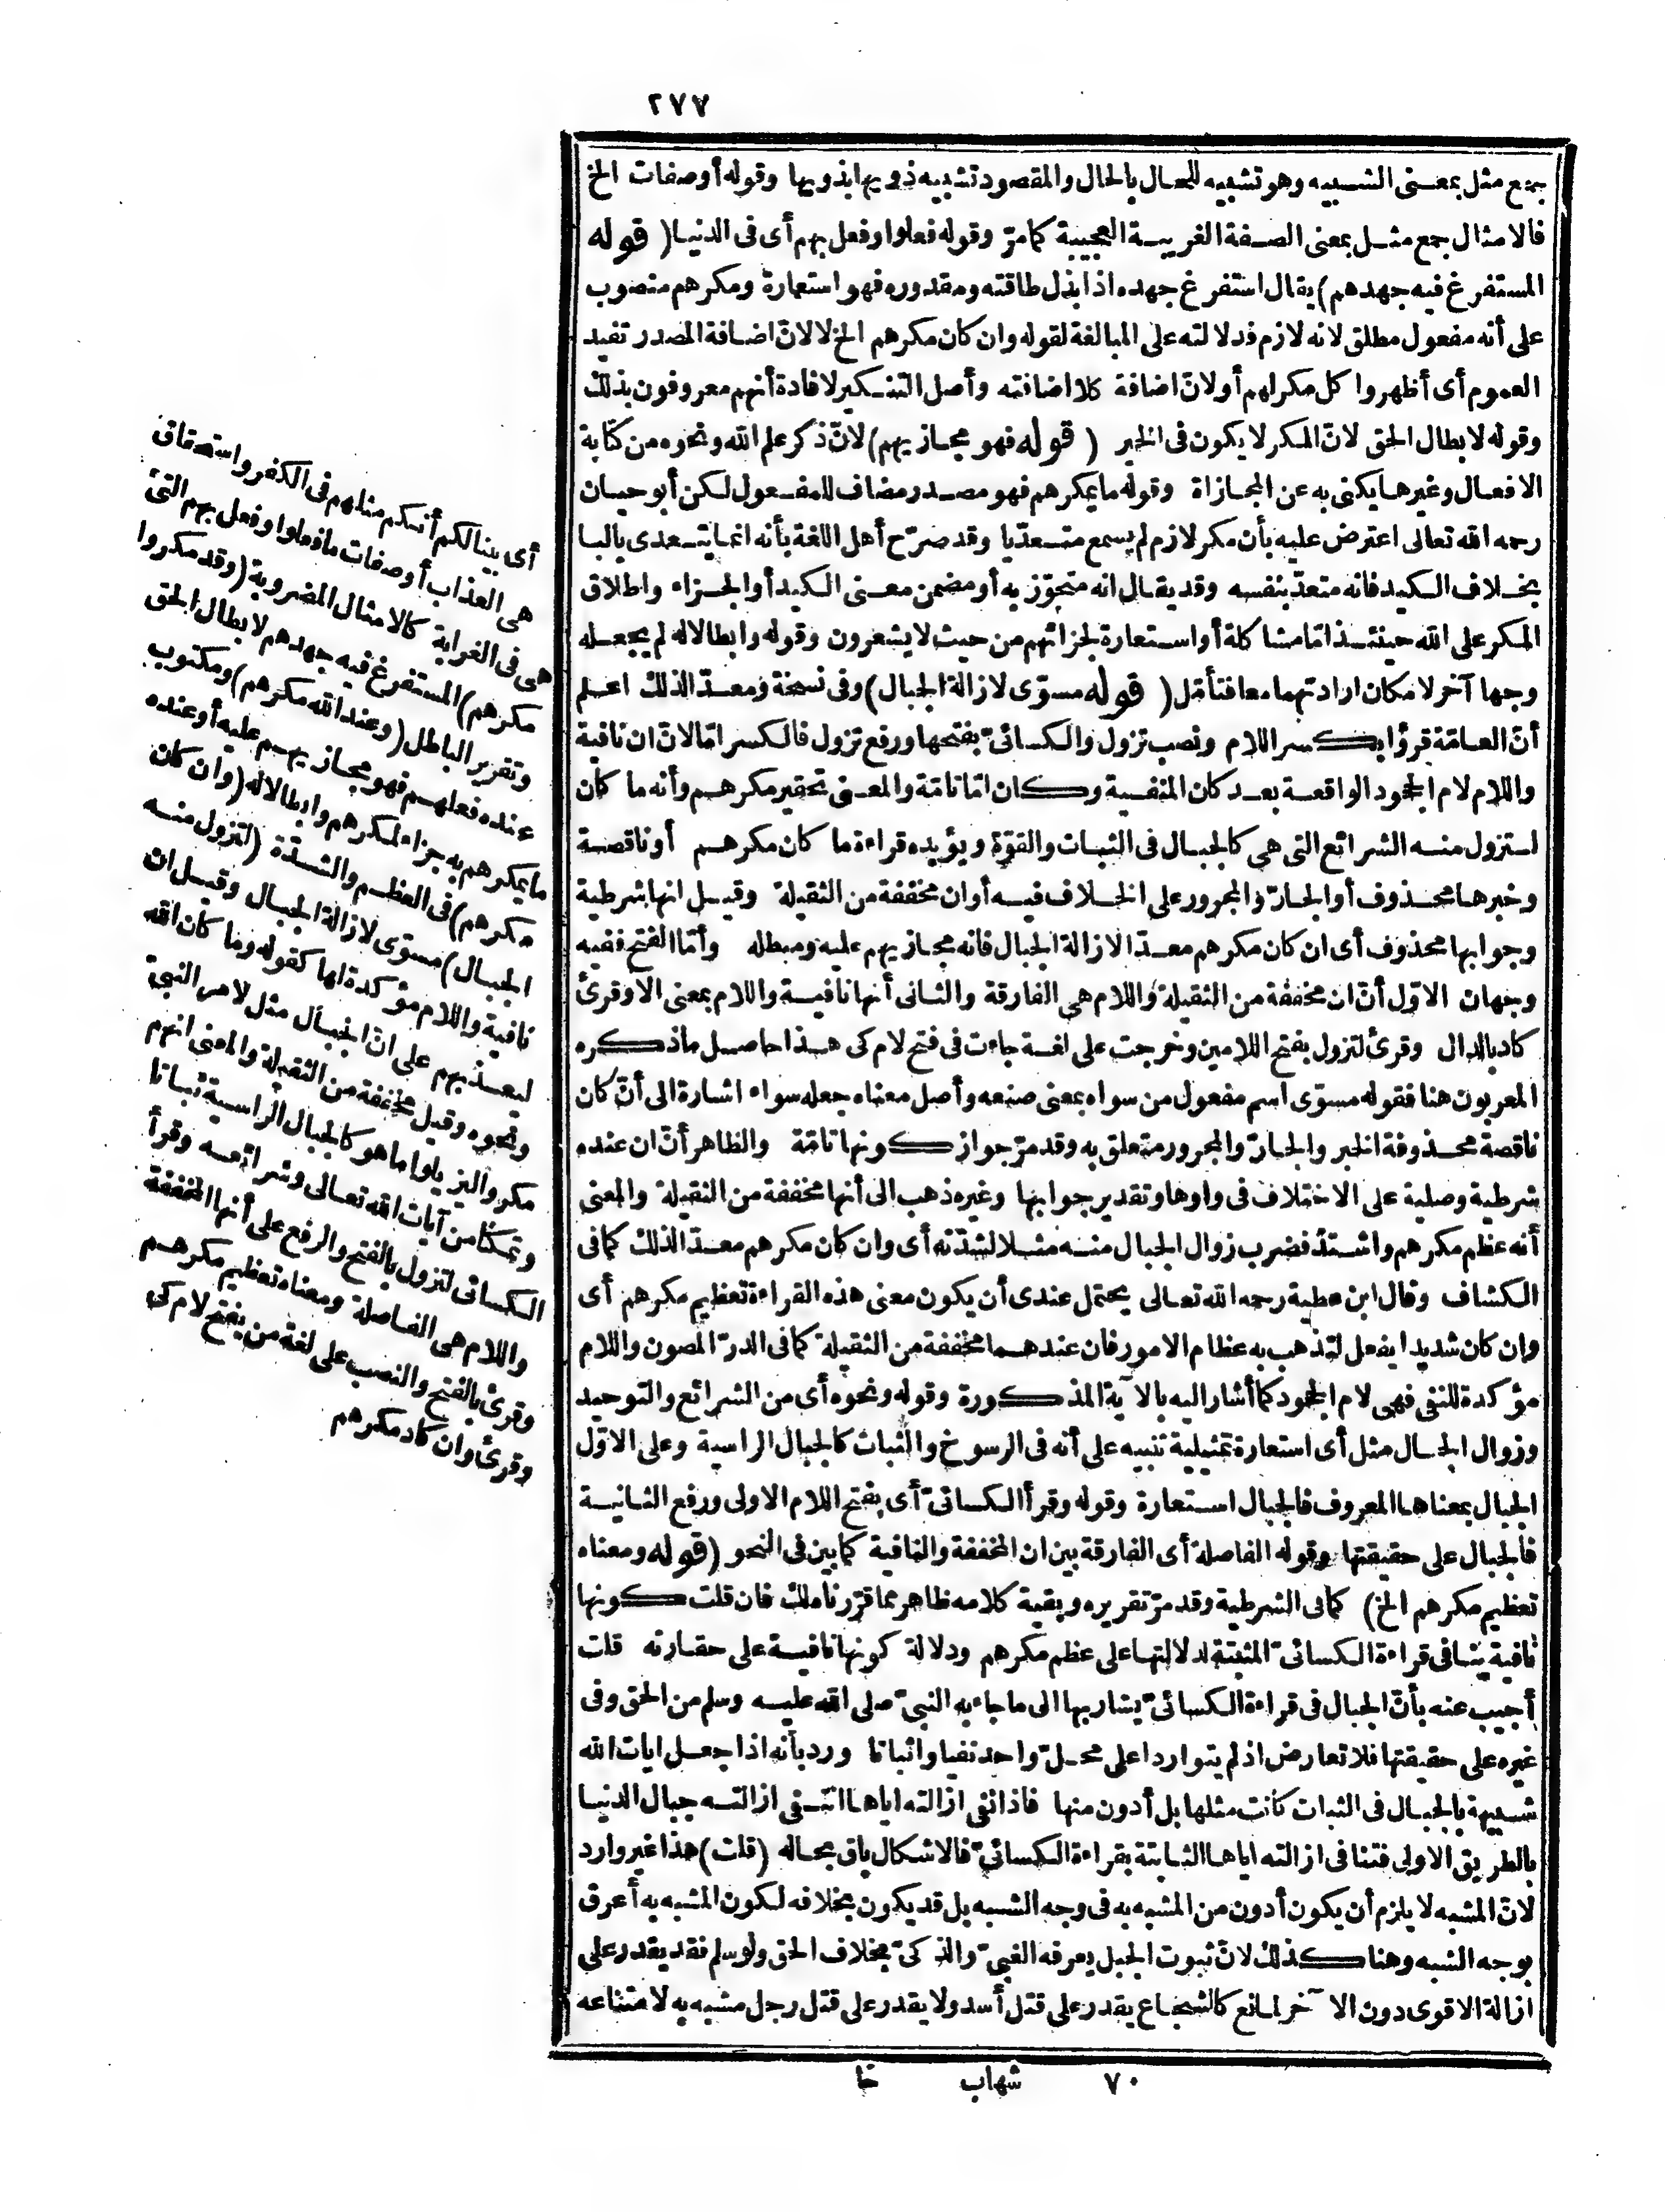 ٢٧٧
جمع مثل بمعنى الشبيه وهو تشبيه للحال بالحال والمقصود تشبيه ذويها بذويها وقوله أو صفات الخ
فالامثال جمع مثل بمعنى الصفة الغريبة العجيبة كما مرّ وقوله فعلوا وفعل بهم أى فى الدنيا (قوله
المستفرغ فيه جهدهم) يقال استفرغ جهده اذا بذل طاقته ومقدوره فهو استعارة ومكرهم منصوب
على أنه مفعول مطلق لانه لازم فدلالته على المبالغة لقوله وان كان مكرهم الخ لا لانّ اضافة المصدر تفيد
العموم أى أظهروا كل مكر لهم أو لانّ اضافة كلا اضافته وأصل التنكير لافادة أنهم معروفون بذلك
وقوله لابطال الحق لانّ المكر لا يكون فى الخير (قوله فهو مجازيهم) لانّ ذكر علم الله ونحوه من كتابة
الافعال وغيرها يكنى به عن المجازاة وقوله ما يمكرهم فهو مصدر مضاف للمفعول لكن أبو حيان
رحمه الله تعالى اعترض عليه بأن مكر لازم لم يسمع متعدّيا وقد صرّح أهل اللغة بأنه انما يتعدى بالبا
بخلاف الكيد فانه متعدّ بنفسه وقد يقال انه متجوّز به أو مضمن معنى الكيد أو الجزاء واطلاق
المكر على الله حينئذ امّا مشاكلة أو استعارة لجزائهم من حيث لا يشعرون وقوله وابطالا له لم يجعله
وجها آخر لامكان ارادتهما معا فتأمّل (قوله مسوّى لازالة الجبال) وفى نسخة ومعدّا لذلك اعلم
أنّ العامّة قرؤا بكسر اللام ونصب تزول والكسائىّ بفتحها ورفع تزول فالكسر امّا لانّ ان نافية
واللام لام الجحود الواقعة بعد كان المنفية وكان امّا تامّة والمعنى تحقير مكرهم وأنه ما كان
لتزول منه الشرائع التى هى كالجبال فى الثبات والقوّة ويؤيده قراءة ما كان مكرهم أو ناقصة
وخبرها محذوف أو الجارّ والمجرور على الخلاف فيه أو ان مخففة من الثقيلة وقيل انها شرطية
وجوابها محذوف أى ان كان مكرهم معدّا لازالة الجبال فانه مجازيهم عليه ومبطله وأمّا الفتح ففيه
وجهان الاوّل أنّ ان مخففة من الثقيلة واللام هى الفارقة والثانى أنها نافية واللام بمعنى الا وقرئ
كاد بالدال وقرئ لتزول بفتح اللامين وخرجت على لغة جاءت فى فتح لام كى هذا حاصل ما ذكره
المعربون هنا فقوله مسوّى اسم مفعول من سواه بمعنى صنعه وأصل معناه جعله سواء اشارة الى أنّ كان
ناقصة محذوفة الخبر والجارّ والمجرور متعلق به وقد مرّ جواز كونها تامّة والظاهر أنّ ان عنده
شرطية وصلية على الاختلاف فى واوها وتقدير جوابها وغيره ذهب الى أنها مخففة من الثقيلة والمعنى
أنه عظم مكرهم واشتدّ فضرب زوال الجبال منه مثلا لشدّته أى وان كان مكرهم معدّا لذلك كما فى
الكشاف وقال ابن عطية رحمه الله تعالى يحتمل عندى أن يكون معنى هذه القراءة تعظيم مكرهم أى
وان كان شديدا يفعل لتذهب به عظام الامور فان عندهما مخففة من الثقيلة كما فى الدرّ المصون واللام
مؤكدة للنفى فهى لام الجحود كما أشار اليه بالآية المذكورة وقوله ونحوه أى من الشرائع والتوحيد
وزوال الجبال مثل أى استعارة تمثيلية تنبيه على أنه فى الرسوخ والثبات كالجبال الراسية وعلى الاوّل
الجبال بمعناها المعروف فالجبال استعارة وقوله وقرأ الكسائىّ أى بفتح اللام الاولى ورفع الثانية
فالجبال على حقيقتها وقوله الفاصلة أى الفارقة بين ان المخففة والنافية كما بين فى النحو (قوله ومعناه
تعظيم مكرهم الخ) كما فى الشرطية وقد مرّ تقريره وبقية كلامه ظاهر مما قرّرناه لك فان قلت كونها
نافية ينافى قراءة الكسائىّ المثبتة لدلالتها على عظم مكرهم ودلالة كونها نافية على حقارته قلت
أجيب عنه بأنّ الجبال فى قراءة الكسائىّ يشار بها الى ما جاء به النبىّ صلى الله عليه وسلم من الحق وفى
غيره على حقيقتها فلا تعارض اذ لم يتواردا على محلّ واحد نفيا واثباتا وردّ بأنه اذا جعل ايات الله
شبيهة بالجبال فى الثبات كانت مثلها بل أدون منها فاذا نفى ازالته اياها انتفى ازالته جبال الدنيا
بالطريق الاولى فتنافى ازالته اياها الثابتة بقراءة الكسائىّ فالاشكال باق بحاله (قلت) هذا غير وارد
لانّ المشبه لا يلزم أن يكون أدون من المشبه به فى وجه الشبه بل قد يكون بخلافه لكون المشبه به أعرق
بوجه الشبه وهنا كذلك لانّ ثبوت الجبل يعرفه الغبىّ والذكىّ بخلاف الحق ولو سلم فقد يقدر على
ازالة الاقوى دون الآخر لمانع كالشجاع يقدر على قتل أسد ولا يقدر على قتل رجل مشبه به لامتناعه
٧٠ شهاب خا
أى بينا لكم أنكم مثلهم فى الكفر واستحقاق
العذاب أو صفات ما فعلوا وفعل بهم التى
هى فى الغرابة كالامثال المضروبة (وقد مكروا
مكرهم) المستفرغ فيه جهدهم لابطال الحق
وتقرير الباطل (وعند الله مكرهم) ومكتوب
عنده فعلهم فهو مجازيهم عليه أو عنده
ما يمكرهم به جزاء لمكرهم وابطالا له (وان كان
مكرهم) فى العظم والشدّة (لتزول منه
الجبال) مسوّى لازالة الجبال وقيل ان
نافية واللام مؤكدة لها كقوله وما كان الله
ليعذبهم على انّ الجبال مثل لامر النبىّ
ونحوه وقيل مخففة من الثقيلة والمعنى انهم
مكروا ليزيلوا ما هو كالجبال الراسية ثباتا
وتمكّنا من آيات الله تعالى وشرائعه وقرأ
الكسائى لتزول بالفتح والرفع على أنها المخففة
واللام هى الفاصلة ومعناه تعظيم مكرهم
وقرئ بالفتح والنصب على لغة من يفتح لام كى
وقرئ وان كاد مكرهم